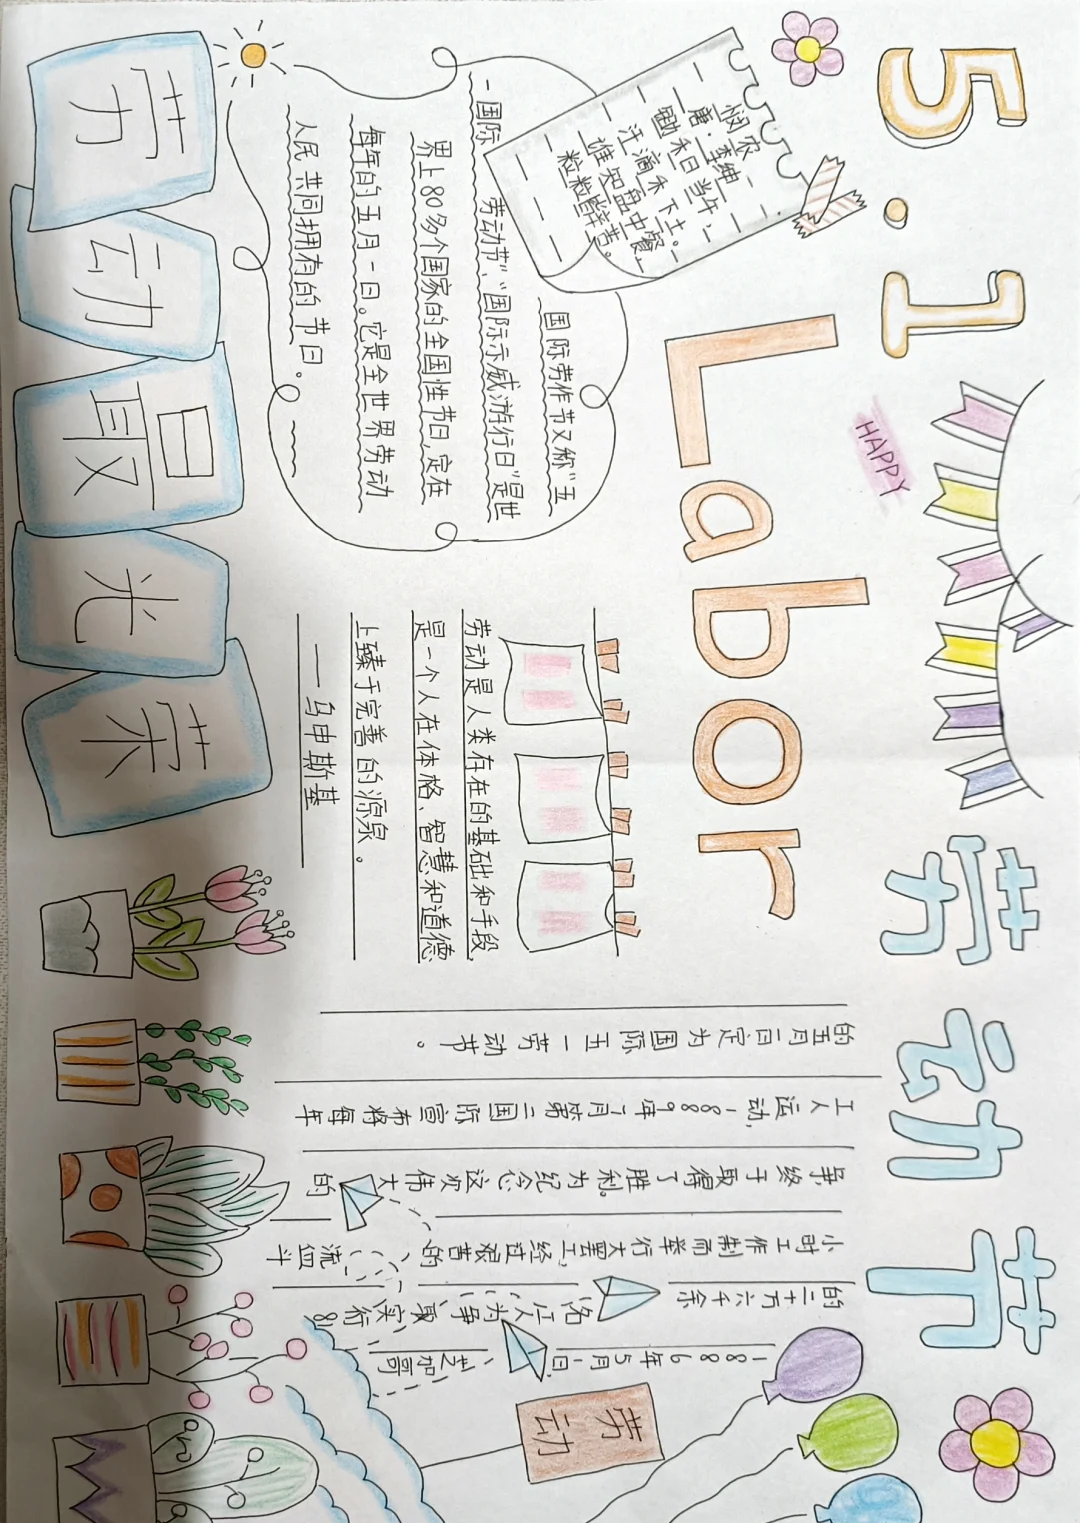 5.1 劳动节
HAPPY
Labor
悯农
唐·李绅
锄禾日当午,
汗滴禾下土。
谁知盘中餐,
粒粒皆辛苦。
国际劳作节又称“五
一国际劳动节”、“国际示威游行日”是世
界上80多个国家的全国性节日,定在
每年的五月一日。它是全世界劳动
人民共同拥有的节日。
劳动是人类存在的基础和手段,
是一个人在体格、智慧和道德
上臻于完善的源泉。
——乌申斯基
1886年5月1日,芝加哥
的二十万六千余名工人为争取实行8
小时工作制而举行大罢工,经过艰苦的流血斗
争终于取得了胜利。为纪念这次伟大的
工人运动,1889年7月第二国际宣布将每年
的五月一日定为国际五一劳动节。
劳动
劳动最光荣